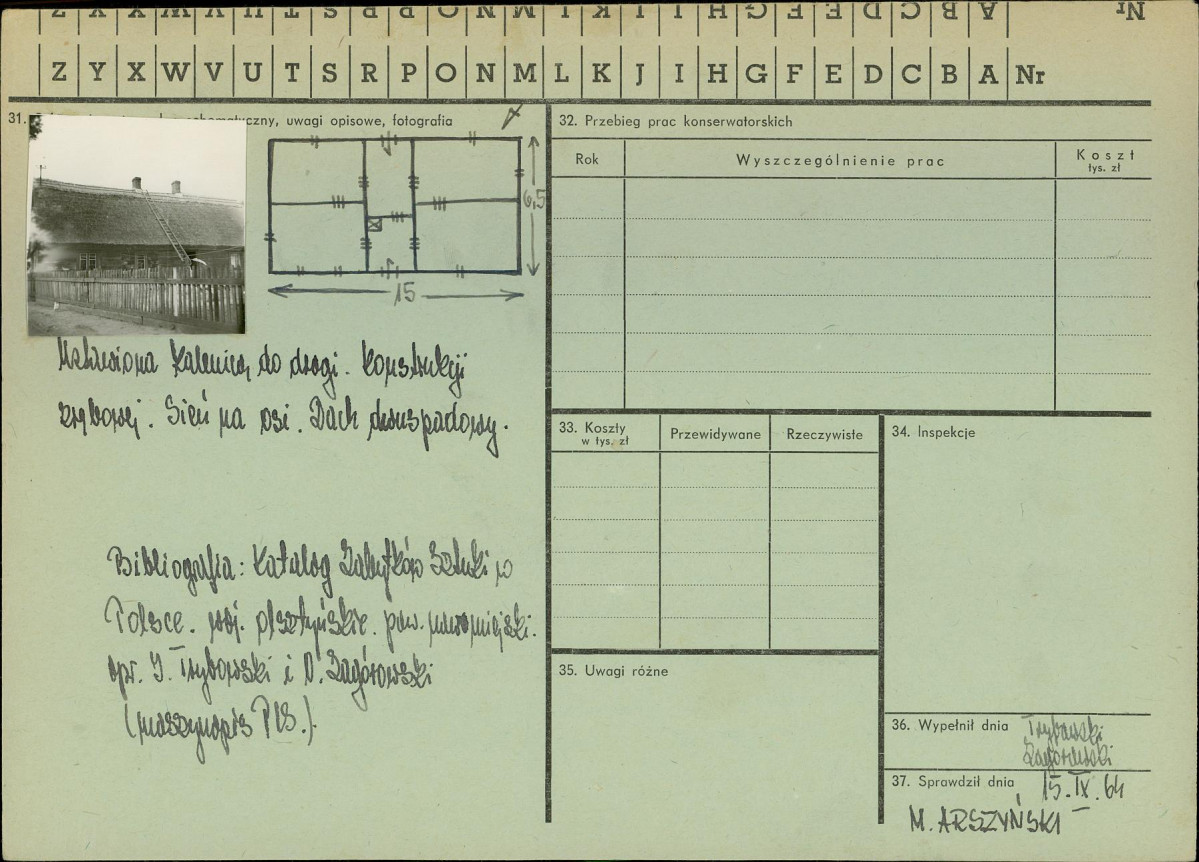 Z Y X W V U T S R P O N M L K J I H G F E D C B A Nr
Z Y X W V U T S R P O N M L K J I H G F E D C B A Nr
31. schematyczny, uwagi opisowe, fotografia
6,5
15
kalenicą do drogi. Konstrukcji
zrębowej. Sień na osi. Dach dwuspadowy.
Bibliografia: Katalog Zabytków Sztuki w
Polsce. woj. olsztyńskie. pow. nowomiejski.
opr. J. Trybowski i O. Zagórowski
(maszynopis PIS.)
32. Przebieg prac konserwatorskich
Rok
Wyszczególnienie prac
Koszt
tys. zł
33. Koszty
w tys. zł
Przewidywane
Rzeczywiste
34. Inspekcje
35. Uwagi różne
36. Wypełnił dnia Trybowski
Zagórowski
37. Sprawdził dnia 15.IX.64
M. ARSZYŃSKI